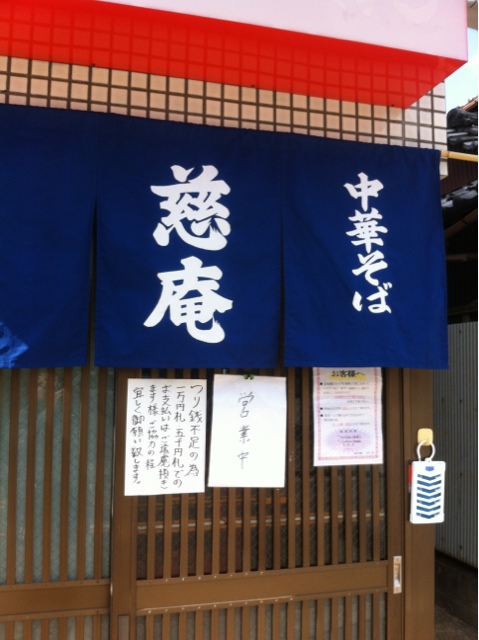 中華そば
慈庵
お客様へ
営業中
つり銭不足の為
一万円札 五千円札での
お支払いはご遠慮頂き
ます様、ご協力の程
宜しく御願い致します。